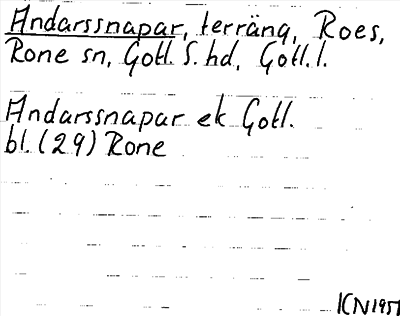 Andarssnapar, terräng, Roes,
Rone sn, Gotl. S. hd, Gotl. l.
Andarssnapar ek Gotl.
bl. (29) Rone
ICN 1951